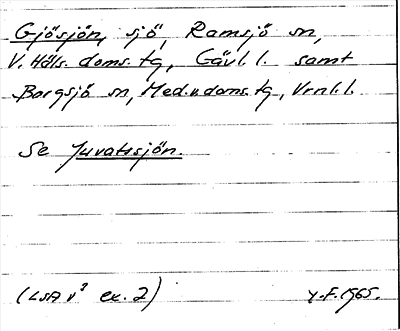 Gjösjön, sjö, Ramsjö sn,
V. Häls. doms. tg, Gävl. l. samt
Borgsjö sn, Med. v. doms. tg, Vrnl. l.
Se Juvatssjön.
(LSA v² ex. 2) Y.F. 1965.